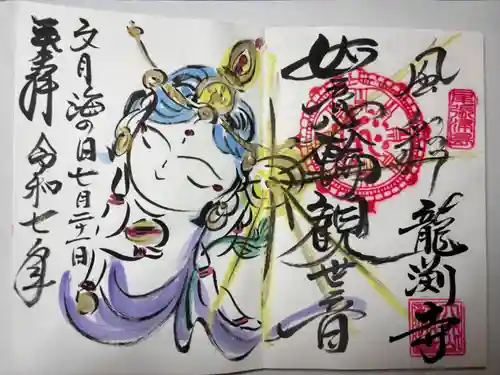 風
龍渕寺
如意輪観世音
文月海の日七月二十一日
奉拝 令和七年